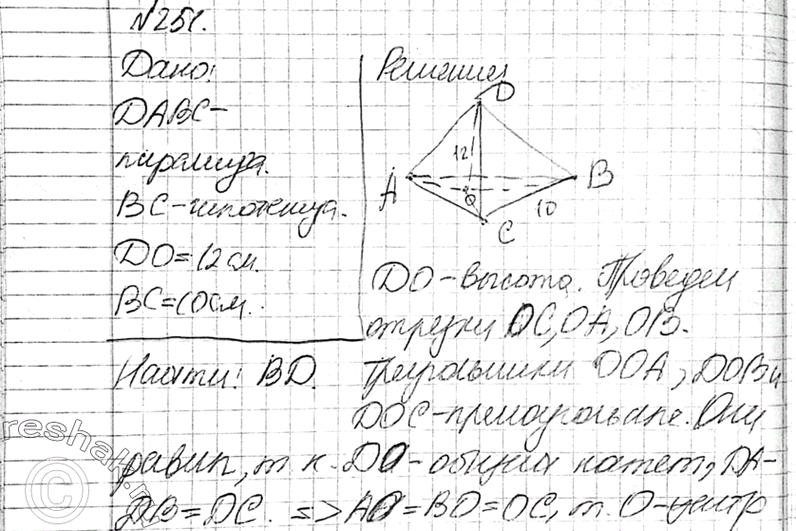 №251.
Дано:
DABC-
пирамида.
BC-гипотенуза.
DO=12см.
BC=10см.
Найти: BD.
Решение
D
12
A
B
O
10
C
DO-высота. Проведем
отрезки OC, OA, OB.
Треугольники DOA, DOB и
DOC-прямоугольные. Они
равны, т.к. DO-общий катет, DA-
DB=DC. => AO=BO=OC, т. O-центр
reshak.ru
©